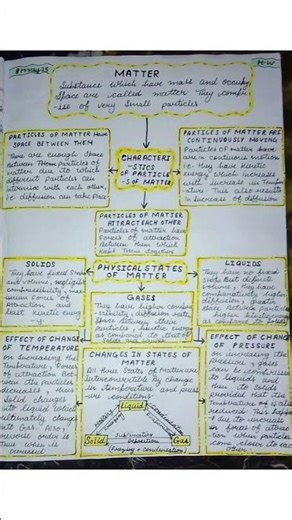 H.W
MATTER
Substance which have mass and occupy
space are called matter They compri
-se of very small particles
PARTICLES OF MATTER HAVE
SPACE BETWEEN THEM
There are enough space
Between Them particles of
matter due to which
different particles can
intermix with each other,
i.e diffusion can take place
CHARACTERI
-STICS
OF PARTICLE
-S OF MATTER
PARTICLES OF MATTER ARE
CONTINUOUSLY MOVING
Particles of matter
are in continuous motion
i.e they have kinetic
energy which increases
with increase in
This also results
in Increase of diffusion
PARTICLES OF MATTER
ATTRACT EACH OTHER
Particles of matter have
Forces of attraction
Between them which
Keeps Them together
SOLIDS
They have fixed
and volume, negligible
compressibility,
force
of attraction and
least kinetic energy
PHYSICAL STATES
OF MATTER
LIQUIDS
They have no fixed
but definite
volume, they have
comparatively higher
diffusion, greater
space between particles
higher kinetic
GASES
They have higher compress
diffusion rate,
space between their
particles, kinetic energy
as compared to that of
solids and
EFFECT OF CHANGE
OF TEMPERATURE
on increasing the
temperature, forces
of attraction Betw
een the particles
decreases, thus
solid changes
into liquid which
ultimately changes
into Gas. Also,
reverse order is
true when it is
decreased
CHANGES IN STATES OF
MATTER
All three States of Matter are
interconvertible By change
in temperature and press
ure conditions.
Liquid
Solid
Sublimation
Deposition
Gas
(Freezing + condensation)
EFFECT OF CHANGE
OF PRESSURE
on increasing the
pressure, gases
can be compressed
to liquids and
then to solids
provided that the
Temperature is also
reduced. This happens
due to increase
in forces of attrac
tion when particles
come closer to each
other